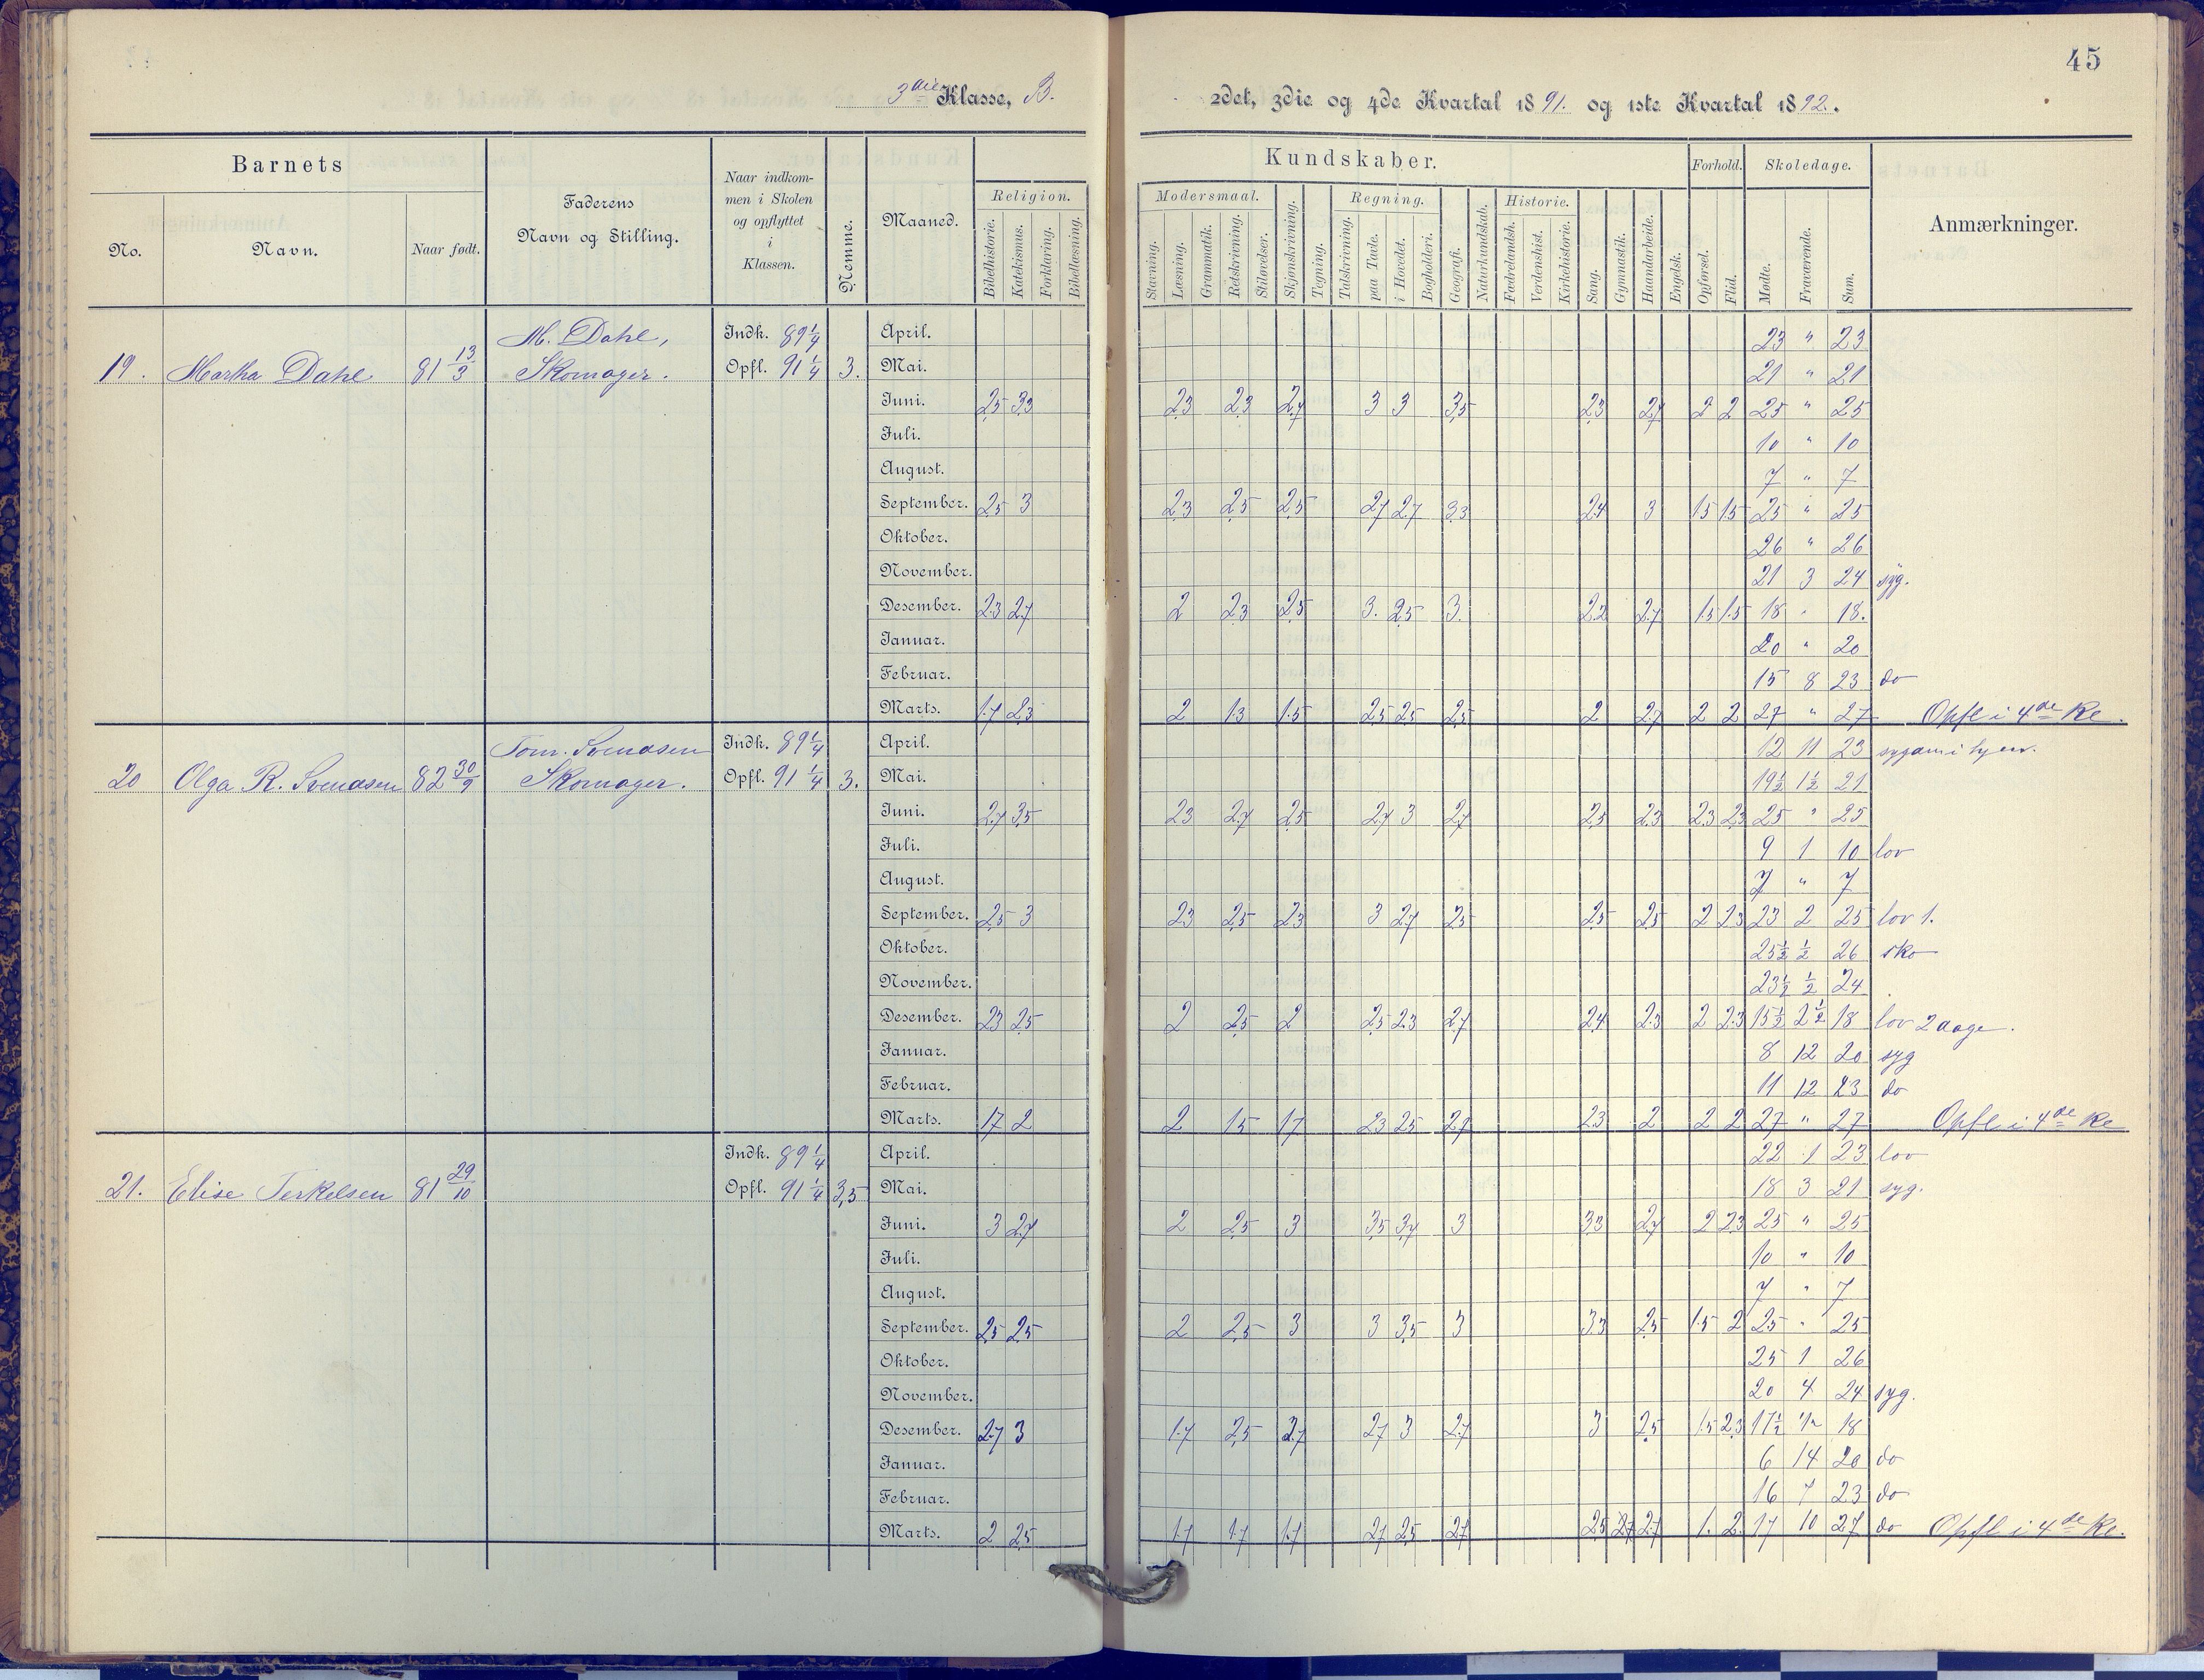 45
3die Klasse, B. 2det, 3die og 4de Kvartal 1891. og 1ste Kvartal 1892.
Barnets
No. Navn. Naar født.
Faderens Navn og Stilling.
Naar indkommen i Skolen og opflyttet i Klassen.
Nemme.
Maaned.
Kundskaber.
Religion.
Bibelhistorie. Katekismus. Forklaring. Bibellæsning.
Modersmaal.
Stavning. Læsning. Grammatik. Retskrivning. Stiløvelser. Skjønskrivning. Tegning.
Regning.
Talskrivning. paa Tavle. i Hovedet. Bogholderi. Geografi. Naturkundskab.
Historie.
Fædrelandsh. Verdenshist. Kirkehistorie. Sang. Gymnastik. Haandarbeide. Engelsk.
Forhold.
Opførsel. Flid.
Skoledage.
Mødte. Fraværende. Sum.
Anmærkninger.
M. Dahl, Indk. 89 1/4 April. 23 " 23
19. Martha Dahl 81 13/9 Skomager. Opfl. 91 1/4 3. Mai. 21 " 21
Juni. 2,5 3,3 2,3 2,3 2,7 3 3 3,5 2,3 2,7 2 2 25 " 25
Juli. 10 " 10
August. 7 " 7
September. 2,5 3 2,3 2,5 2,5 2,7 2,7 3,3 2,4 3 1,5 1,5 25 " 25
Oktober. 26 " 26
November. 21 3 24 syg.
Desember. 2,3 2,7 2 2,3 2,5 3. 2,5 3. 2,2 2,7 1,5 1,5 18 " 18.
Januar. 20 " 20
Februar. 15 8 23 do
Marts. 1,7 2,3 2 1,3 1,5 2,5 2,5 2,5 2 2,7 2 2 27 " 27 Opfl i 4de Kl.
Tom. Svendsen Indk. 89 1/4 April. 12 11 23 sygdom i hjem.
20 Olga R. Svendsen 82 30/9 Skomager. Opfl. 91 1/4 3. Mai. 19 1/2 1 1/2 21
Juni. 2,7 3,5 2,3 2,7 2,5 2,7 3 2,7 2,5 2,3 2,3 2,3 25 " 25
Juli. 9 1 10 lov
August. 7 " 7
September. 2,5 3 2,3 2,5 2,3 3 2,7 2,5 2,5 2,5 2 2,3 23 2 25 lov 1.
Oktober. 25 1/2 1/2 26 sko
November. 23 1/2 1/2 24
Desember. 2,3 2,5 2 2,5 2 2,5 2,3 2,7 2,4 2,3 2 2,3 15 1/2 2 1/2 18 lov 2 dage.
Januar. 8 12 20 syg
Februar. 11 12 23 do
Marts. 1,7 2 2 1,5 1,7 2,3 2,5 2,7 2,3 2 2 2 27 " 27 Opfl i 4de Kl
Indk. 89 1/4 April. 22 1 23 lov
21. Elise Terkelsen 81 29/10 Opfl. 91 1/4 3,5 Mai. 18 3 21 syg.
Juni. 3 2,7 2 2,5 3 3,5 3,7 3 3,3 2,7 2 2,3 25 " 25
Juli. 10 " 10
August. 7 " 7
September. 2,5 2,5 2 2,5 3 3 3,5 3 3,3 2,5 1,5 2 25 " 25
Oktober. 25 1 26
November. 20 4 24 syg.
Desember. 2,7 3 1,7 2,5 2,7 2,7 3 2,7 3 2,5 1,5 2,3 17 1/2 1/2 18
Januar. 6 14 20 do
Februar. 16 7 23 do
Marts. 2 2,5 1,7 1,7 1,7 2,7 2,5 2,7 2,5 2,7 2,7 1. 2. 17 10 27 do Opfl i 4de Kl.